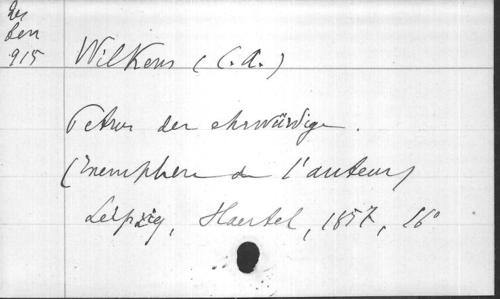 Res
Len
915
Wilkens (C.A.)
Petrus der ehrwürdige.
(Exemplaire de l'auteur)
Leipzig, Haertel, 1857, 16°